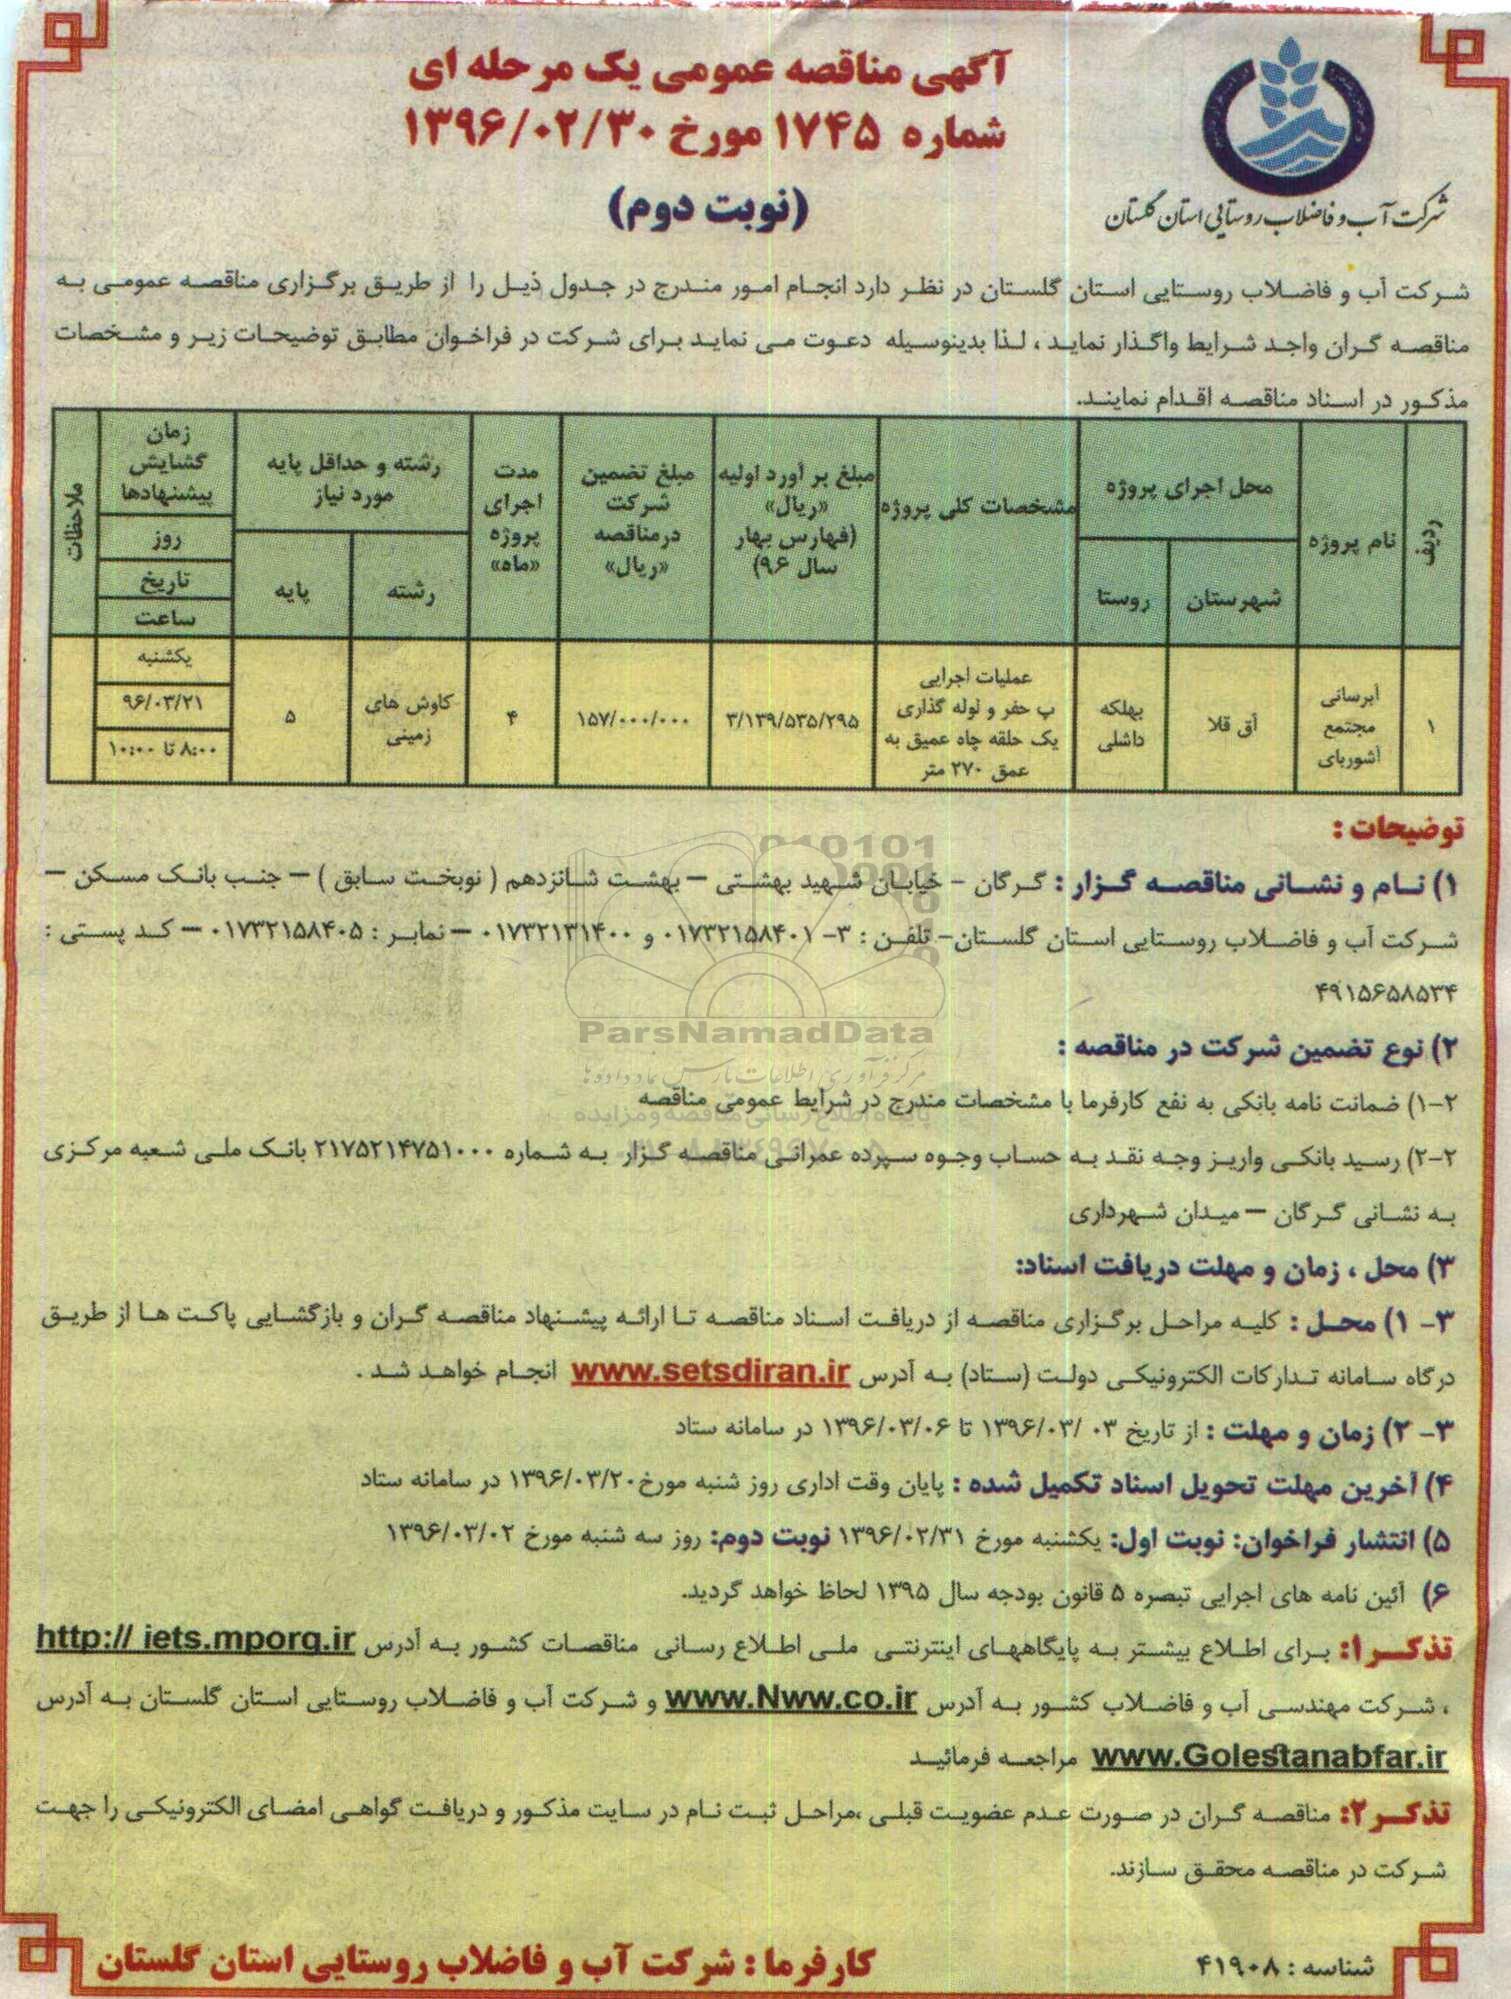 آگهی مناقصه عمومی یک مرحله ای
شماره ۱۷۴۵ مورخ ۱۳۹۶/۰۲/۳۰
(نوبت دوم)
شرکت آب و فاضلاب روستایی استان گلستان
شرکت آب و فاضلاب روستایی استان گلستان در نظر دارد انجام امور مندرج در جدول ذیل را از طریق برگزاری مناقصه عمومی به
مناقصه گران واجد شرایط واگذار نماید ، لذا بدینوسیله دعوت می نماید برای شرکت در فراخوان مطابق توضیحات زیر و مشخصات
مذکور در اسناد مناقصه اقدام نمایند.
ردیف
نام پروژه
محل اجرای پروژه
شهرستان
روستا
مشخصات کلی پروژه
مبلغ بر آورد اولیه
«ریال»
(فهارس بهار
سال ۹۶)
مبلغ تضمین
شرکت
درمناقصه
«ریال»
مدت
اجرای
پروژه
«ماه»
رشته و حداقل پایه
مورد نیاز
رشته
پایه
زمان
گشایش
پیشنهادها
روز
تاریخ
ساعت
ملاحظات
۱
آبرسانی
مجتمع
آشوربای
آق قلا
بهلکه
داشلی
عملیات اجرایی
پ حفر و لوله گذاری
یک حلقه چاه عمیق به
عمق ۲۷۰ متر
۳/۱۳۹/۵۳۵/۲۹۵
۱۵۷/۰۰۰/۰۰۰
۴
کاوش های
زمینی
۵
یکشنبه
۹۶/۰۳/۲۱
۸:۰۰ تا ۱۰:۰۰
توضیحات :
۱) نام و نشانی مناقصه گزار : گرگان - خیابان شهید بهشتی – بهشت شانزدهم ( نوبخت سابق ) – جنب بانک مسکن –
شرکت آب و فاضلاب روستایی استان گلستان- تلفن : ۳- ۰۱۷۳۲۱۵۸۴۰۱ و ۰۱۷۳۲۱۳۱۴۰۰ – نمابر : ۰۱۷۳۲۱۵۸۴۰۵ – کد پستی :
۴۹۱۵۶۵۸۵۳۴
۲) نوع تضمین شرکت در مناقصه :
۲-۱) ضمانت نامه بانکی به نفع کارفرما با مشخصات مندرج در شرایط عمومی مناقصه
۲-۲) رسید بانکی واریز وجه نقد به حساب وجوه سپرده عمرانی مناقصه گزار به شماره ۲۱۷۵۲۱۴۷۵۱۰۰۰ بانک ملی شعبه مرکزی
به نشانی گرگان – میدان شهرداری
۳) محل ، زمان و مهلت دریافت اسناد:
۳- ۱) محل : کلیه مراحل برگزاری مناقصه از دریافت اسناد مناقصه تا ارائه پیشنهاد مناقصه گران و بازگشایی پاکت ها از طریق
درگاه سامانه تدارکات الکترونیکی دولت (ستاد) به آدرس www.setsdiran.ir انجام خواهد شد .
۳- ۲) زمان و مهلت : از تاریخ ۰۳ /۱۳۹۶/۰۳ تا ۱۳۹۶/۰۳/۰۶ در سامانه ستاد
۴) آخرین مهلت تحویل اسناد تکمیل شده : پایان وقت اداری روز شنبه مورخ۱۳۹۶/۰۳/۲۰ در سامانه ستاد
۵) انتشار فراخوان: نوبت اول: یکشنبه مورخ ۱۳۹۶/۰۲/۳۱ نوبت دوم: روز سه شنبه مورخ ۱۳۹۶/۰۳/۰۲
۶) آئین نامه های اجرایی تبصره ۵ قانون بودجه سال ۱۳۹۵ لحاظ خواهد گردید.
تذکر۱: برای اطلاع بیشتر به پایگاههای اینترنتی ملی اطلاع رسانی مناقصات کشور به آدرس http:// iets.mporg.ir
، شرکت مهندسی آب و فاضلاب کشور به آدرس www.Nww.co.ir و شرکت آب و فاضلاب روستایی استان گلستان به آدرس
www.Golestanabfar.ir مراجعه فرمائید
تذکر۲: مناقصه گران در صورت عدم عضویت قبلی ،مراحل ثبت نام در سایت مذکور و دریافت گواهی امضای الکترونیکی را جهت
شرکت در مناقصه محقق سازند.
شناسه : ۴۱۹۰۸
کارفرما : شرکت آب و فاضلاب روستایی استان گلستان
ParsNamadData
مرکز فرآوری اطلاعات پارس نماد داده ها